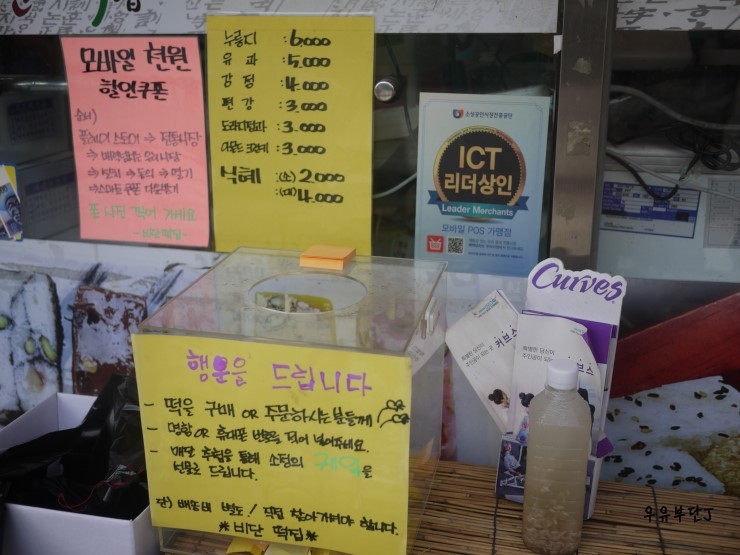 모바일 천원
할인쿠폰
순서)
플레이 스토어 ⇒ 전통시장
⇒ 보기 ⇒ 동의 ⇒ 받기
⇒ 스마트 쿠폰 다운받기
꼭 사진 찍어 가세요
- 비단떡집 -
누룽디 : 6.000
유과 : 5.000
강정 : 4.000
편강 : 3.000
도라지정과 : 3.000
: 3.000
식혜 :(소) 2.000
:(대) 4.000
소상공인시장진흥공단
ICT
리더상인
Leader Merchants
모바일 POS 가맹점
Curves
커브스
커브스
행운을 드립니다
- 떡을 구매 OR 주문하시는분들께
- 명함 OR 휴대폰 번호를 적어 넣어주세요.
- 매달 추첨을 통해 소정의 을
선물로 드립니다.
단) 배송비 별도! 직접 찾아가셔야 합니다.
* 비단 떡집 *
우유부단J